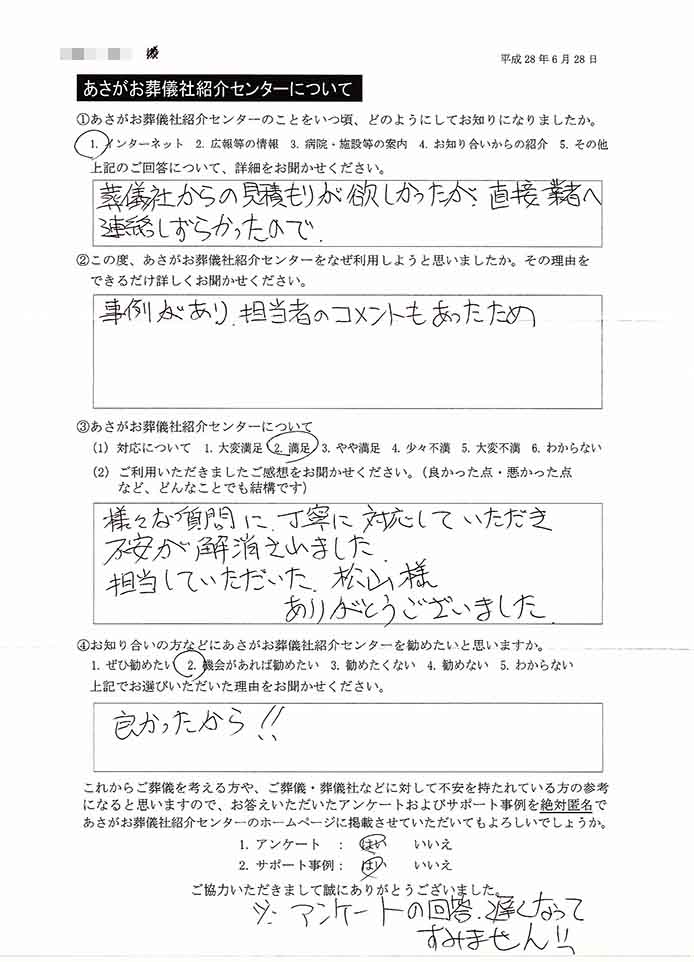 様
平成28年6月28日
あさがお葬儀社紹介センターについて
①あさがお葬儀社紹介センターのことをいつ頃、どのようにしてお知りになりましたか。
1. インターネット 2. 広報等の情報 3. 病院・施設等の案内 4. お知り合いからの紹介 5. その他
上記のご回答について、詳細をお聞かせください。
葬儀社からの見積もりが欲しかったが、直接業者へ
連絡しずらかったので.
②この度、あさがお葬儀社紹介センターをなぜ利用しようと思いましたか。その理由を
できるだけ詳しくお聞かせください。
事例があり、担当者のコメントもあったため
③あさがお葬儀社紹介センターについて
(1) 対応について 1. 大変満足 2. 満足 3. やや満足 4. 少々不満 5. 大変不満 6. わからない
(2) ご利用いただきましたご感想をお聞かせください。（良かった点・悪かった点
など、どんなことでも結構です）
様々な質問に、丁寧に対応していただき
不安が解消されました.
担当していただいた、松山様
ありがとうございました.
④お知り合いの方などにあさがお葬儀社紹介センターを勧めたいと思いますか。
1. ぜひ勧めたい 2. 機会があれば勧めたい 3. 勧めたくない 4. 勧めない 5. わからない
上記でお選びいただいた理由をお聞かせください。
良かったから!!
これからご葬儀を考える方や、ご葬儀・葬儀社などに対して不安を持たれている方の参考
になると思いますので、お答えいただいたアンケートおよびサポート事例を絶対匿名で
あさがお葬儀社紹介センターのホームページに掲載させていただいてもよろしいでしょうか。
1. アンケート : はい いいえ
2. サポート事例: はい いいえ
ご協力いただきまして誠にありがとうございました。
アンケートの回答、遅くなって
すみません!!